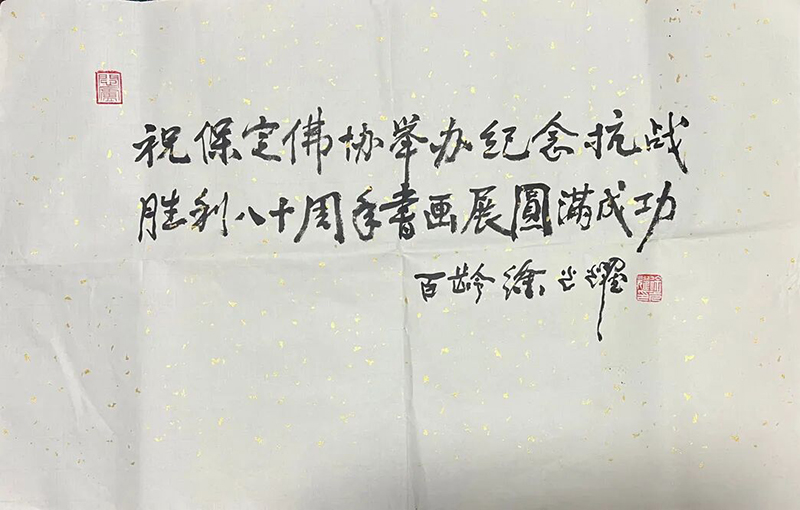 祝保定佛协举办纪念抗战
胜利八十周年書画展圓满成功
百龄徐光耀